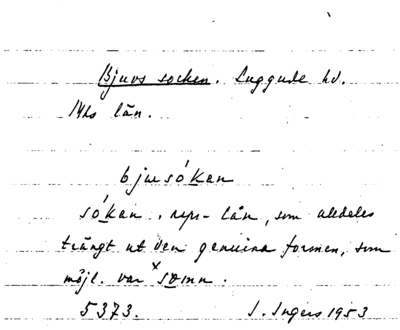 Bjuvs socken. Luggude hd.
Mhs län.
bjusókan
sókan, rsps-lån, som alldeles
trängt ut den genuina formen, som
möjl. var *sømn.
5373. I. Ingers 1953